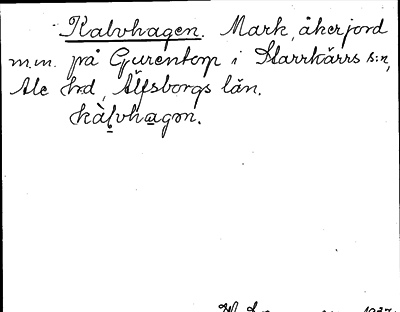 Kalvhagen. Mark, åkerjord
m.m. på Gurentorp i Starrkärrs s:n,
Ale hd, Älfsborgs län.
kàlvhagən.
1937.